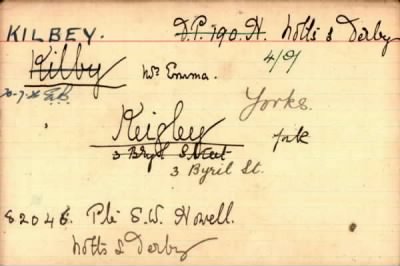 KILBEY. D.P. 190. H. Notts & Derby
Kilby Mrs Emma. 4/D/
Yorks.
Keigley
3 Byril Street
3 Byril St.
82046. Pte S.W. Howell.
Notts & Derby